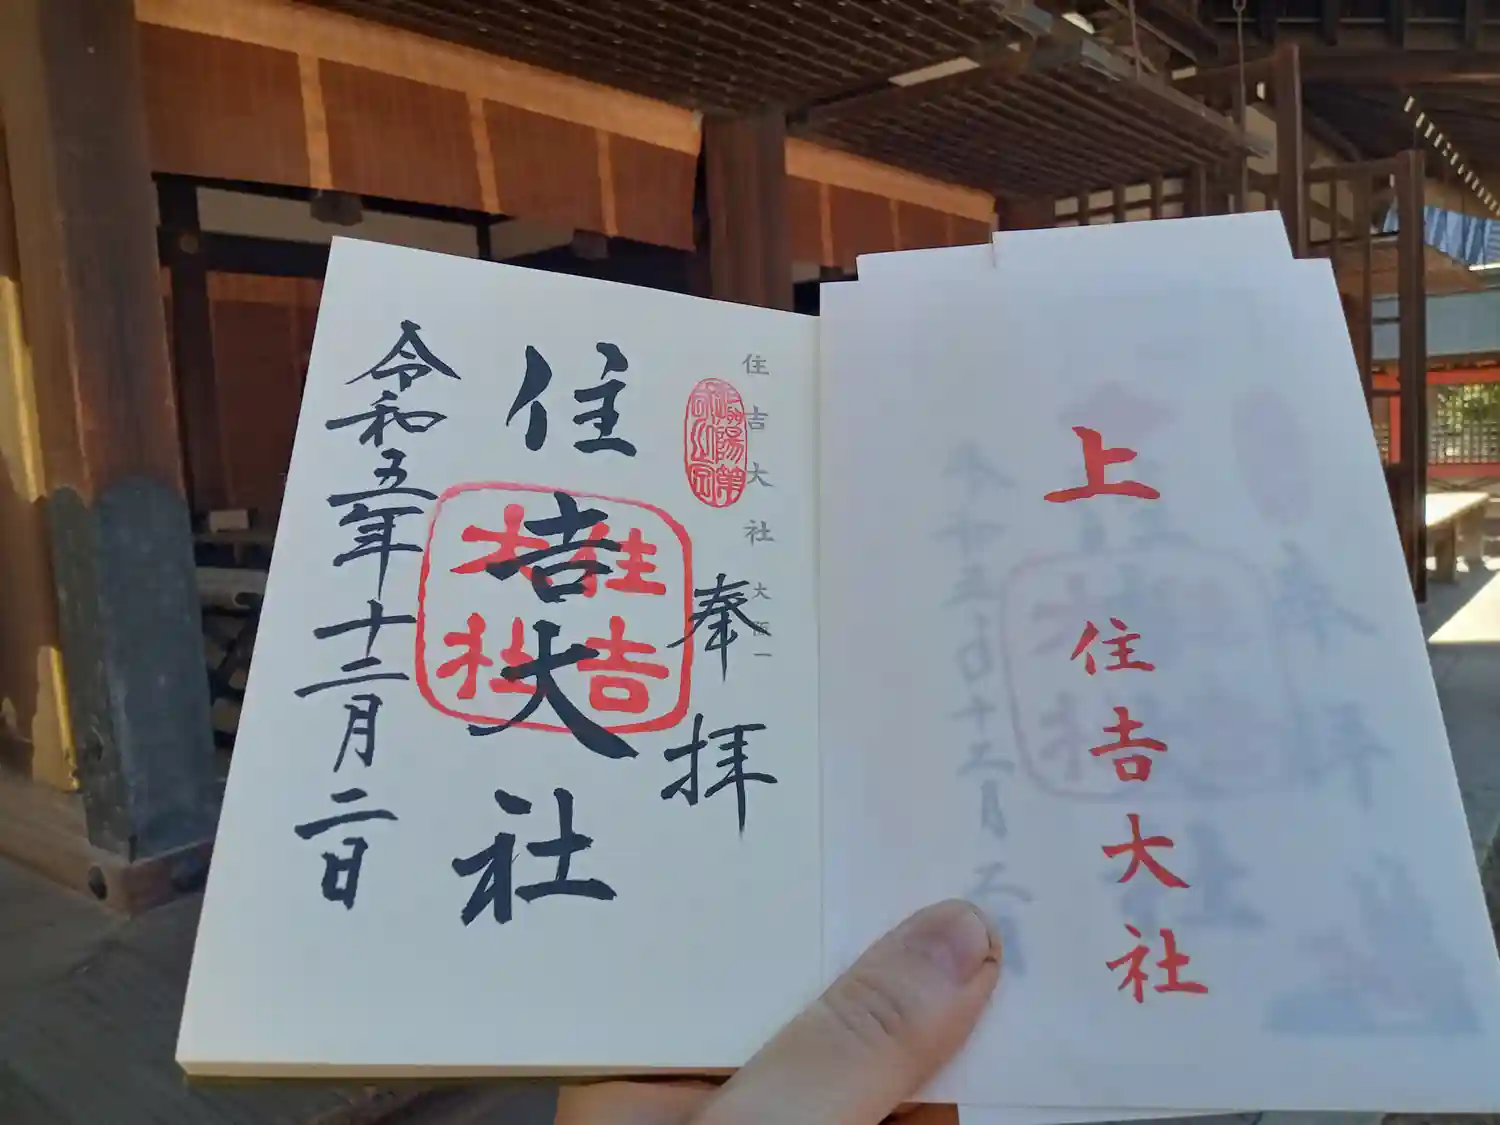 住吉大社 大阪一
奉拝
住吉大社
住吉大社
令和五年十二月二日
上
住吉大社